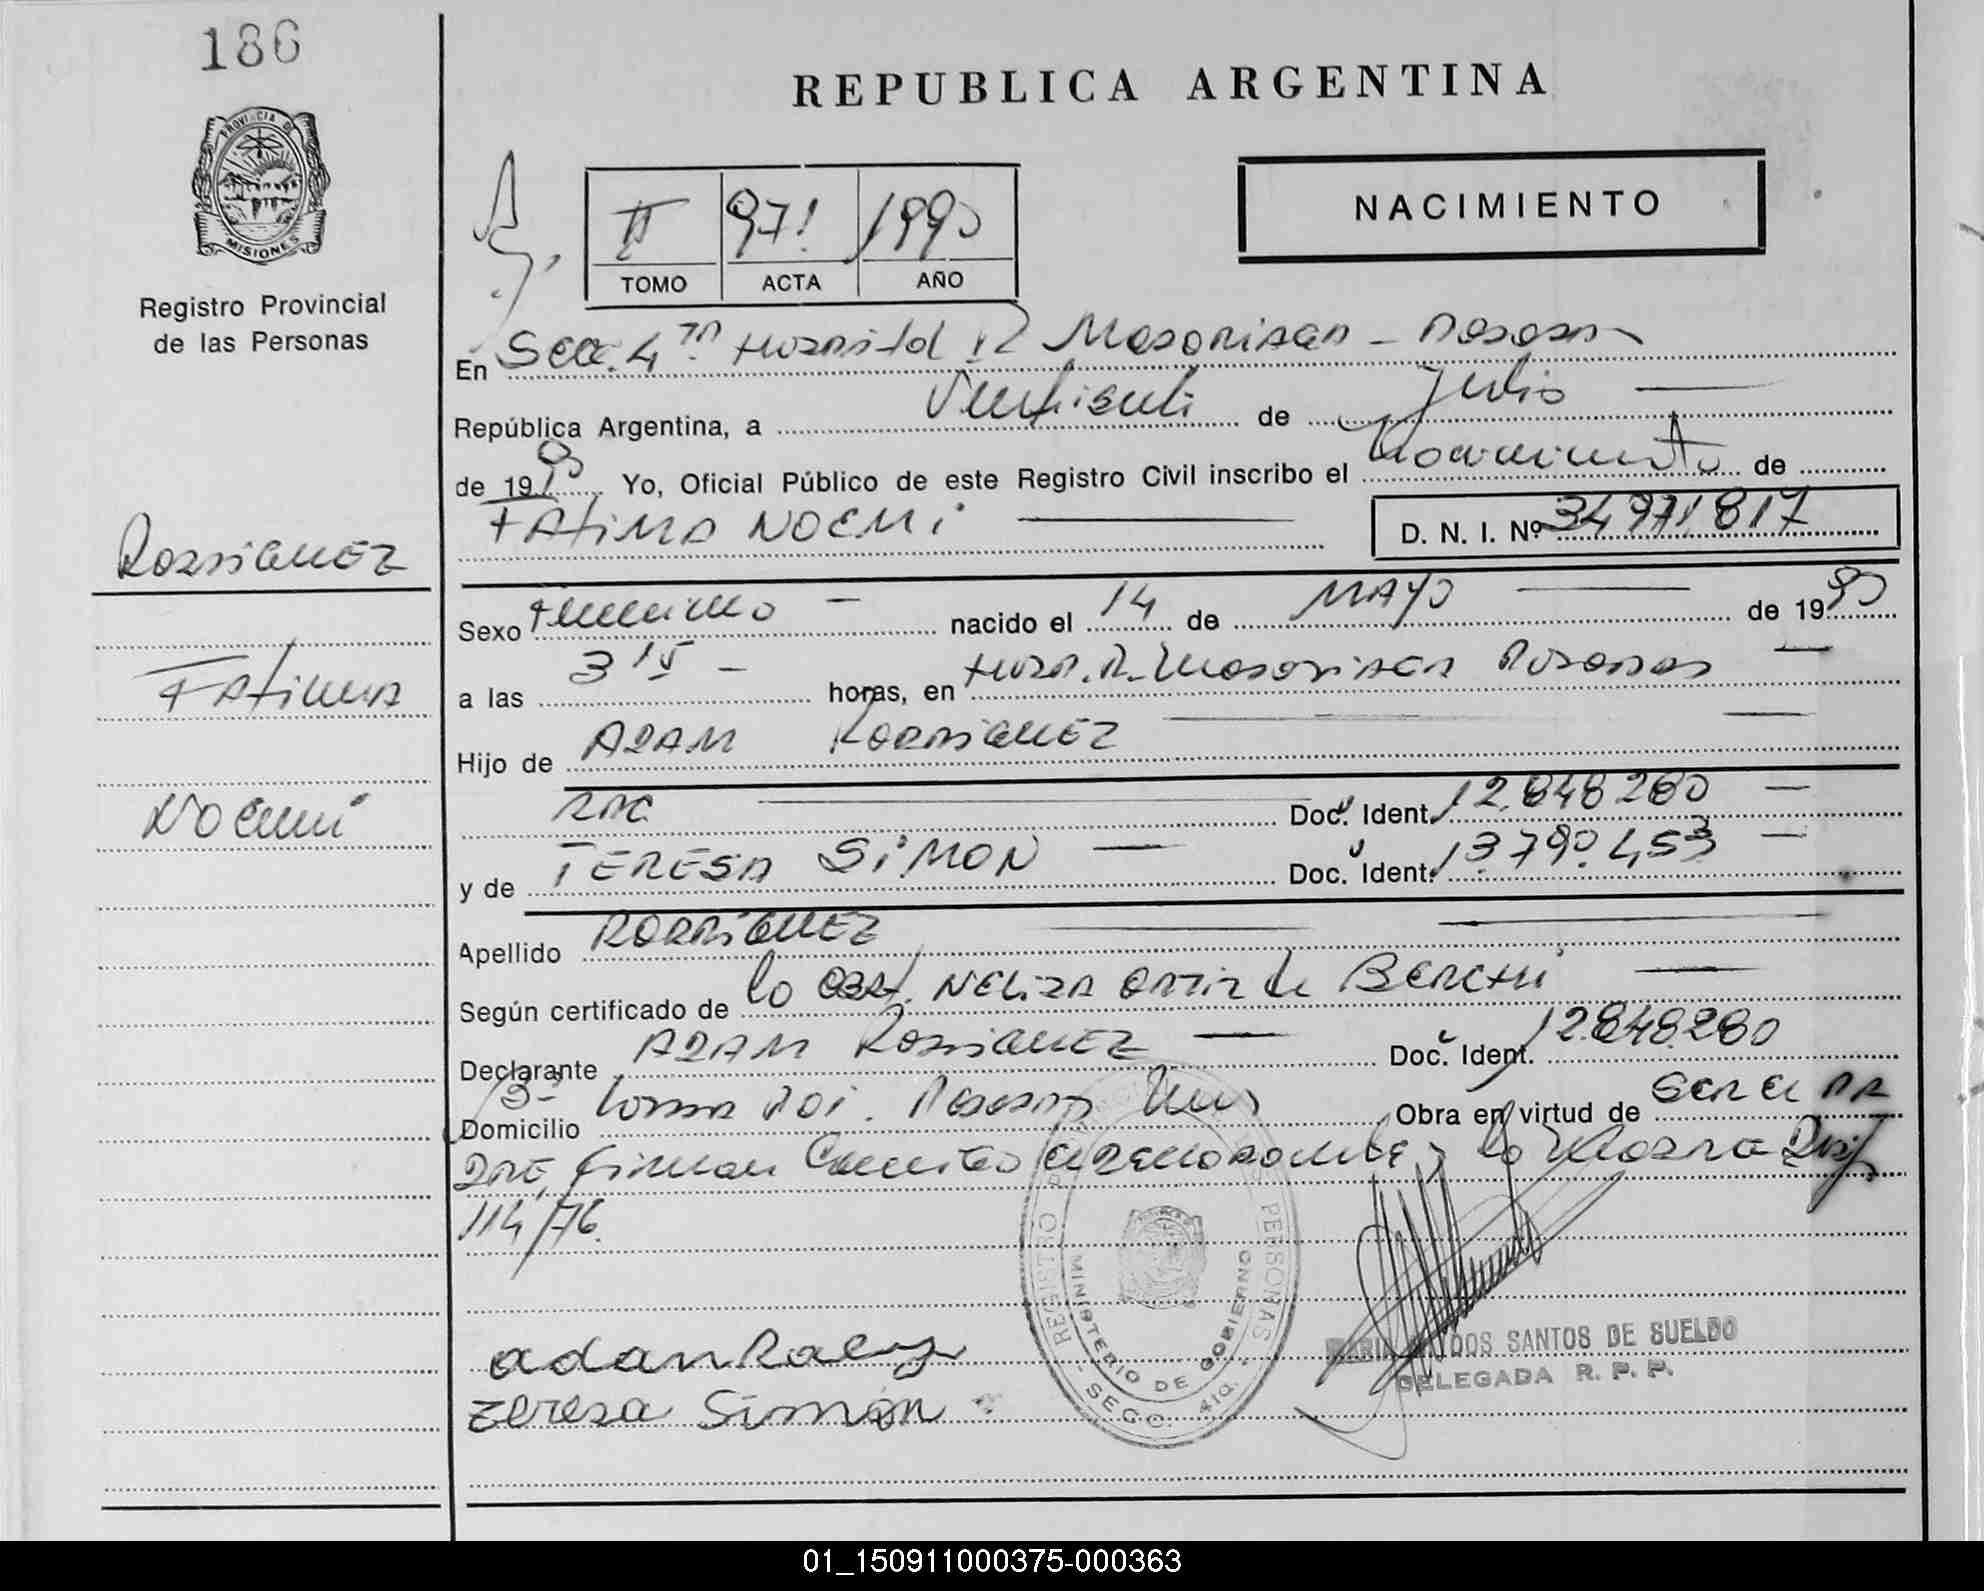 186
PROVINCIA DE
MISIONES
Registro Provincial
de las Personas
Rodriguez
Fatima
Noemi
REPUBLICA ARGENTINA
NACIMIENTO
II 971 1990
TOMO ACTA AÑO
En Secc. 4ta Hospital R Madariaga - Posadas
República Argentina, a Veintisiete de Julio
de 1990 Yo, Oficial Público de este Registro Civil inscribo el Nacimiento de
FATIMA NOEMI D. N. I. Nº 34971817
Sexo Femenino nacido el 14 de MAYO de 1990
a las 3 15 horas, en Hosp. R. Madariaga Posadas
Hijo de ADAN RODRIGUEZ
Doc. Ident. 12.848280
y de TERESA SIMON Doc. Ident. 13.790.453
Apellido RODRIGUEZ
Según certificado de la Obst. NELIDA ORTIZ de
Declarante ADAN Rodriguez Doc. Ident. 12.848.280
Domicilio Posadas Mnes Obra en virtud de ser el PA
DRE, firman la Madre Disp
114/76.
REGISTRO PERSONAS
MINISTERIO DE GOBIERNO
- SECC. 4ta. -
adan
teresa Simon
DOS SANTOS DE SUELDO
DELEGADA R. P. P.
01_150911000375-000363